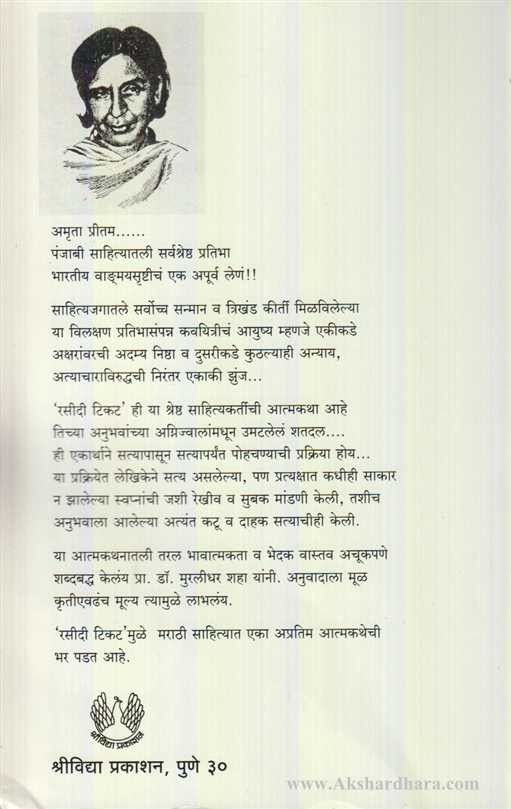 अमृता प्रीतम......
पंजाबी साहित्यातली सर्वश्रेष्ठ प्रतिभा
भारतीय वाङ्मयसृष्टीचं एक अपूर्व लेणं!!
साहित्यजगातले सर्वोच्च सन्मान व त्रिखंड कीर्ती मिळविलेल्या
या विलक्षण प्रतिभासंपन्न कवयित्रीचं आयुष्य म्हणजे एकीकडे
अक्षरांवरची अदम्य निष्ठा व दुसरीकडे कुठल्याही अन्याय,
अत्याचाराविरुद्धची निरंतर एकाकी झुंज...
‘रसीदी टिकट’ ही या श्रेष्ठ साहित्यकर्तीची आत्मकथा आहे
तिच्या अनुभवांच्या अग्निज्वालांमधून उमटलेलं शतदल....
ही एकार्थाने सत्यापासून सत्यापर्यंत पोहचण्याची प्रक्रिया होय...
या प्रक्रियेत लेखिकेने सत्य असलेल्या, पण प्रत्यक्षात कधीही साकार
न झालेल्या स्वप्नांची जशी रेखीव व सुबक मांडणी केली, तशीच
अनुभवाला आलेल्या अत्यंत कटू व दाहक सत्याचीही केली.
या आत्मकथनातली तरल भावात्मकता व भेदक वास्तव अचूकपणे
शब्दबद्ध केलंय प्रा. डॉ. मुरलीधर शहा यांनी. अनुवादाला मूळ
कृतीएवढंच मूल्य त्यामुळे लाभलंय.
‘रसीदी टिकट’मुळे मराठी साहित्यात एका अप्रतिम आत्मकथेची
भर पडत आहे.
श्रीविद्या प्रकाशन
श्रीविद्या प्रकाशन, पुणे ३०
www.Akshardhara.com